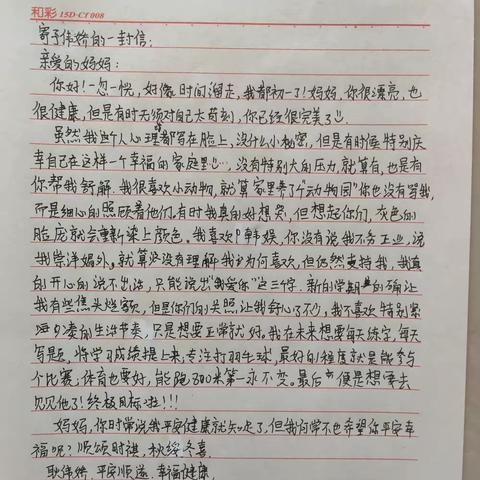 和彩 15D-Cf 008
寄予伟娇的一封信:
亲爱的妈妈:
你好!一忽一恍,好像时间溜走,我都初一了!妈妈,你很漂亮,也
很健康,但是有时无须对自己太苛刻,你已经很完美了
虽然我这个人心理都写在脸上,没什么小秘密,但是有时候特别庆
幸自己在这样一个幸福的家庭里…,没有特别大的压力,就算有,也是有
你帮我舒解,我很喜欢小动物,就算家里养了“动物园”你也没有骂我,
而是细心的照顾着他们,有时我真的好想哭,但想起你们,灰色的
脸庞就会重新染上颜色。我喜欢内韩娱,你没有说我不务正业,说
我崇洋媚外,就算没有理解我为何喜欢,但仍然支持我,我真
的开心的说不出话,只能说出“我爱你”这三个字,新的学期的确让
我有些焦头烂额,但是你们的关照让我舒心了不少,我不喜欢特别紧
凑的生活节奏,只是想要正常就好。我在未来想要每天练字,每天
写题,将学习成绩提上来,专注打羽毛球,最好的程度就是能参与
个比赛;体育也要好,能跑800米第一永不变。最后便是想要去
见见他了!终极目标啦!!!
妈妈,你时常说我平安健康就知足了,但我何尝不也希望你平安幸
福呢?顺颂时祺,秋绥冬喜.
耿伟娇,平安顺遂,幸福健康.